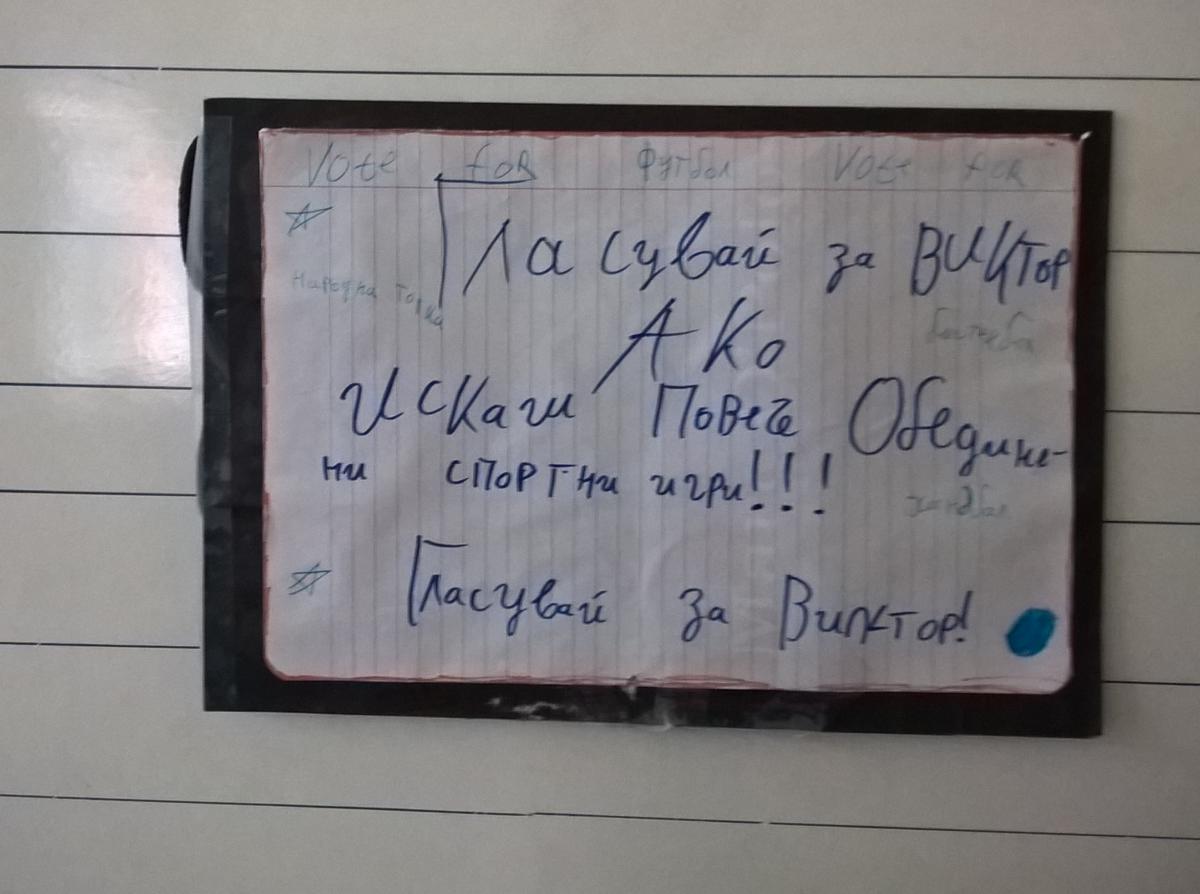 Vote for футбол Vote for
Гласувай за Виктор
народна топка
Ако
Искаш Повече Обедине-
ни спортни игри!!!
хандбал
Гласувай за Виктор!